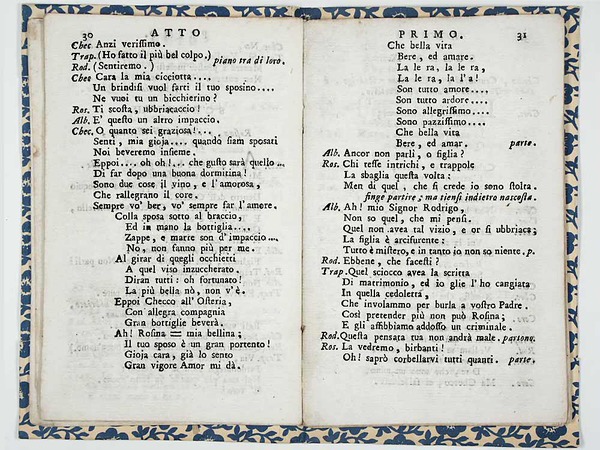 30 ATTO
Chec. Anzi verissimo.
Trap. (Ho fatto il più bel colpo.)
Rod. (Sentiremo.) piano tra di loro.
Chec Cara la mia cicciotta....
Un brindisi vuol farti il tuo sposino....
Ne vuoi tu un bicchierino?
Ros. Ti scosta, ubbriacaccio!
Alb. E' questo un altro impaccio.
Chec. O quanto sei graziosa!...
Senti, mia gioja.... quando siam sposati
Noi beveremo insieme.
Eppoi.... oh oh!... che gusto sarà quello ...
Di far dopo una buona dormitina!
Sono due cose il vino, e l'amorosa,
Che rallegrano il core.
Sempre vo' ber, vo' sempre far l'amore.
Colla sposa sotto al braccio,
Ed in mano la bottiglia....
Zappe, e marre son d'impaccio...,
No, non fanno più per me.
Al girar di quegli occhietti
A quel viso inzuccherato.
Diran tutti: oh fortunato!
La più bella nò, non v'è.
Eppoi Checco all'Osteria,
Con allegra compagnia
Gran bottiglie beverà.
Ah! Rosina = mia bellina;
Il tuo sposo è un gran portento!
Gioja cara, già lo sento
Gran vigore Amor mi dà.
PRIMO. 31
Che bella vita
Bere, ed amare.
La le ra, la le ra,
La le ra, la l'a!
Son tutto amore....
Son tutto ardore....
Sono allegrissimo....
Sono pazzissimo....
Che bella vita
Bere, ed amar. parte.
Alb. Ancor non parli, o figlia?
Ros. Chi tesse intrichi, e trappole
La sbaglia questa volta:
Men di quel, che si crede io sono stolta.
finge partire; ma tiensi indietro nascosta.
Alb. Ah! mio Signor Rodrigo,
Non so quel, che mi pensi.
Quel non avea tal vizio, e or si ubbriaca;
La figlia è arcifurente:
Tutto è mistero, e in tanto io non so niente. p.
Rod. Ebbene, che facesti?
Trap. Quel sciocco avea la scritta
Di matrimonio, ed io glie l'ho cangiata
In quella cedoletta,
Che involammo per burla a vostro Padre.
Così pretender più non può Rosina;
E gli affibbiamo addosso un criminale.
Rod. Questa pensata tua non andrà male. partono.
Ros. La vedremo, birbanti!
Oh! saprò corbellarvi tutti quanti. parte.